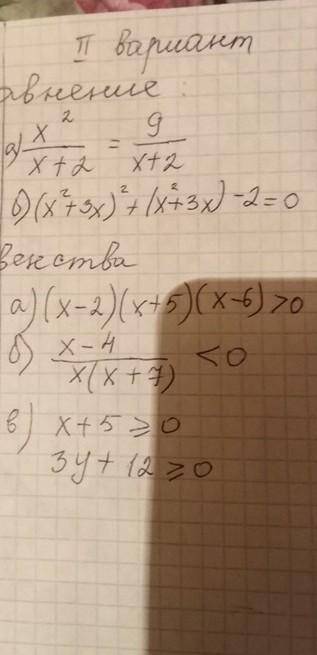 II вариант
авнение:
а) x²/(x+2) = 9/(x+2)
б) (x²+3x)² + (x²+3x) - 2 = 0
венства
а) (x-2)(x+5)(x-6)>0
б) (x-4)/(x(x+7)) < 0
в) x+5 ≥ 0
3y+12 ≥ 0